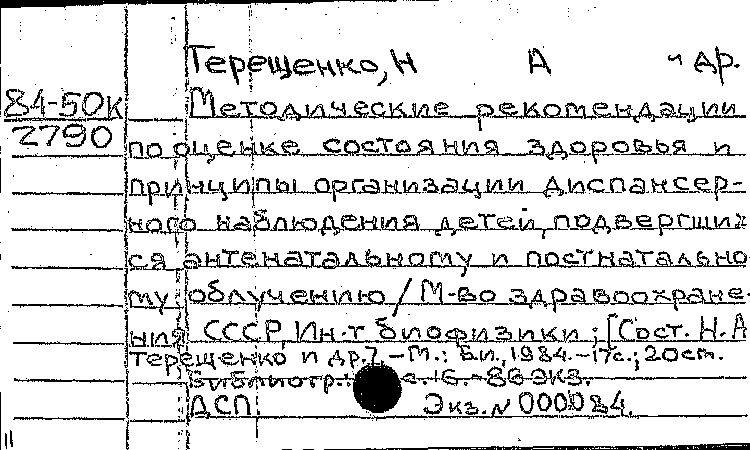 Терещенко, Н А и др.
84-50к Методические рекомендации
2790 по оценке состояния здоровья и
принципы организации диспансер-
ного наблюдения детей, подвергших
ся антенатальному и постнатально
му облучению / М-во здравоохране-
ния СССР, Ин-т биофизики; [Сост. Н.А
Терещенко и др.]. - М.: Б.и., 1984. - 17с.; 20см.
Библиогр.: с. 16. - 86 экз.
ДСП. Экз. N 000084.